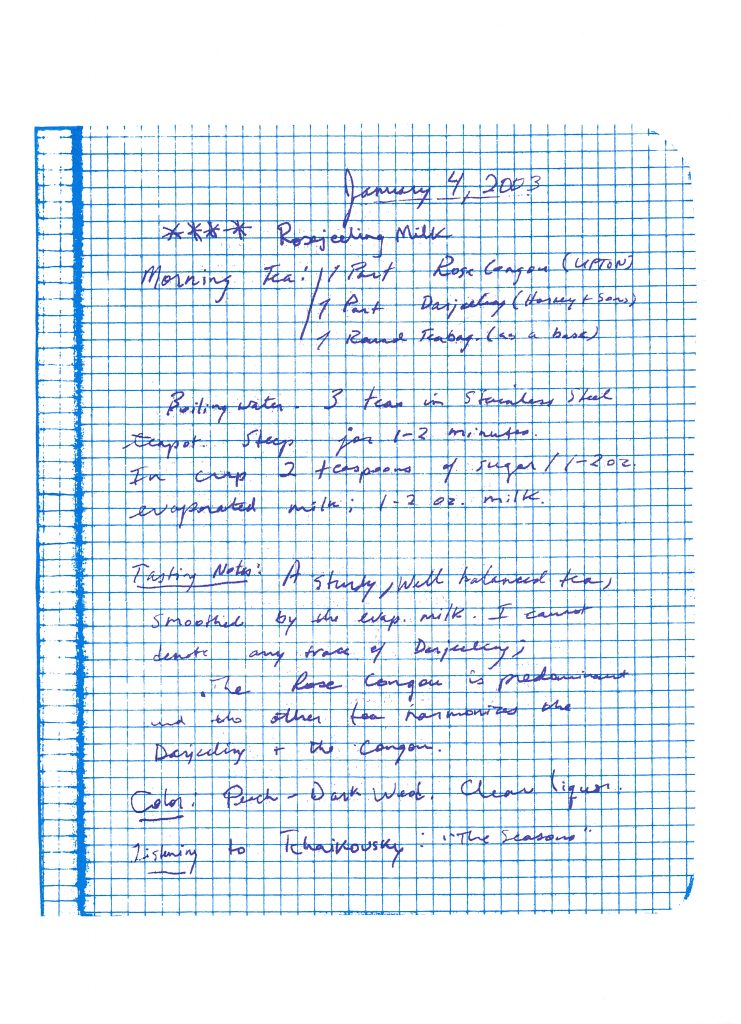 January 4, 2003
**** Rosejeeling Milk
Morning Tea: / 1 Part Rose Congou (UPTON)
1 Part Darjeeling (Harney + Sons)
1 Round Teabag. (as a base)
Boiling water. 3 teas in stainless steel
teapot. Steep for 1-2 minutes.
In cup 2 teaspoons of sugar / 1-2 oz.
evaporated milk; 1-2 oz. milk.
Tasting Notes: A sturdy, well balanced tea,
smoothed by the evap. milk. I cannot
denote any trace of Darjeeling;
The Rose Congou is predominant
and the other tea harmonizes the
Darjeeling + the Congou.
Color: - Dark Clear liquor.
Listening to Tchaikovsky: "The Seasons"